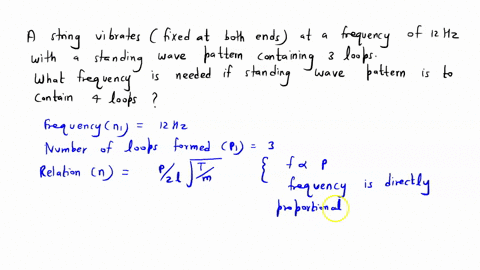 A string vibrates (fixed at both ends) at a frequency of 12 Hz
with a standing wave pattern containing 3 loops.
What frequency is needed if standing wave pattern is to
contain 4 loops ?
frequency (n₁) = 12 Hz
Number of loops formed (P₁) = 3
Relation (n) = P/2l √T/m { f α P
frequency is directly
proportional